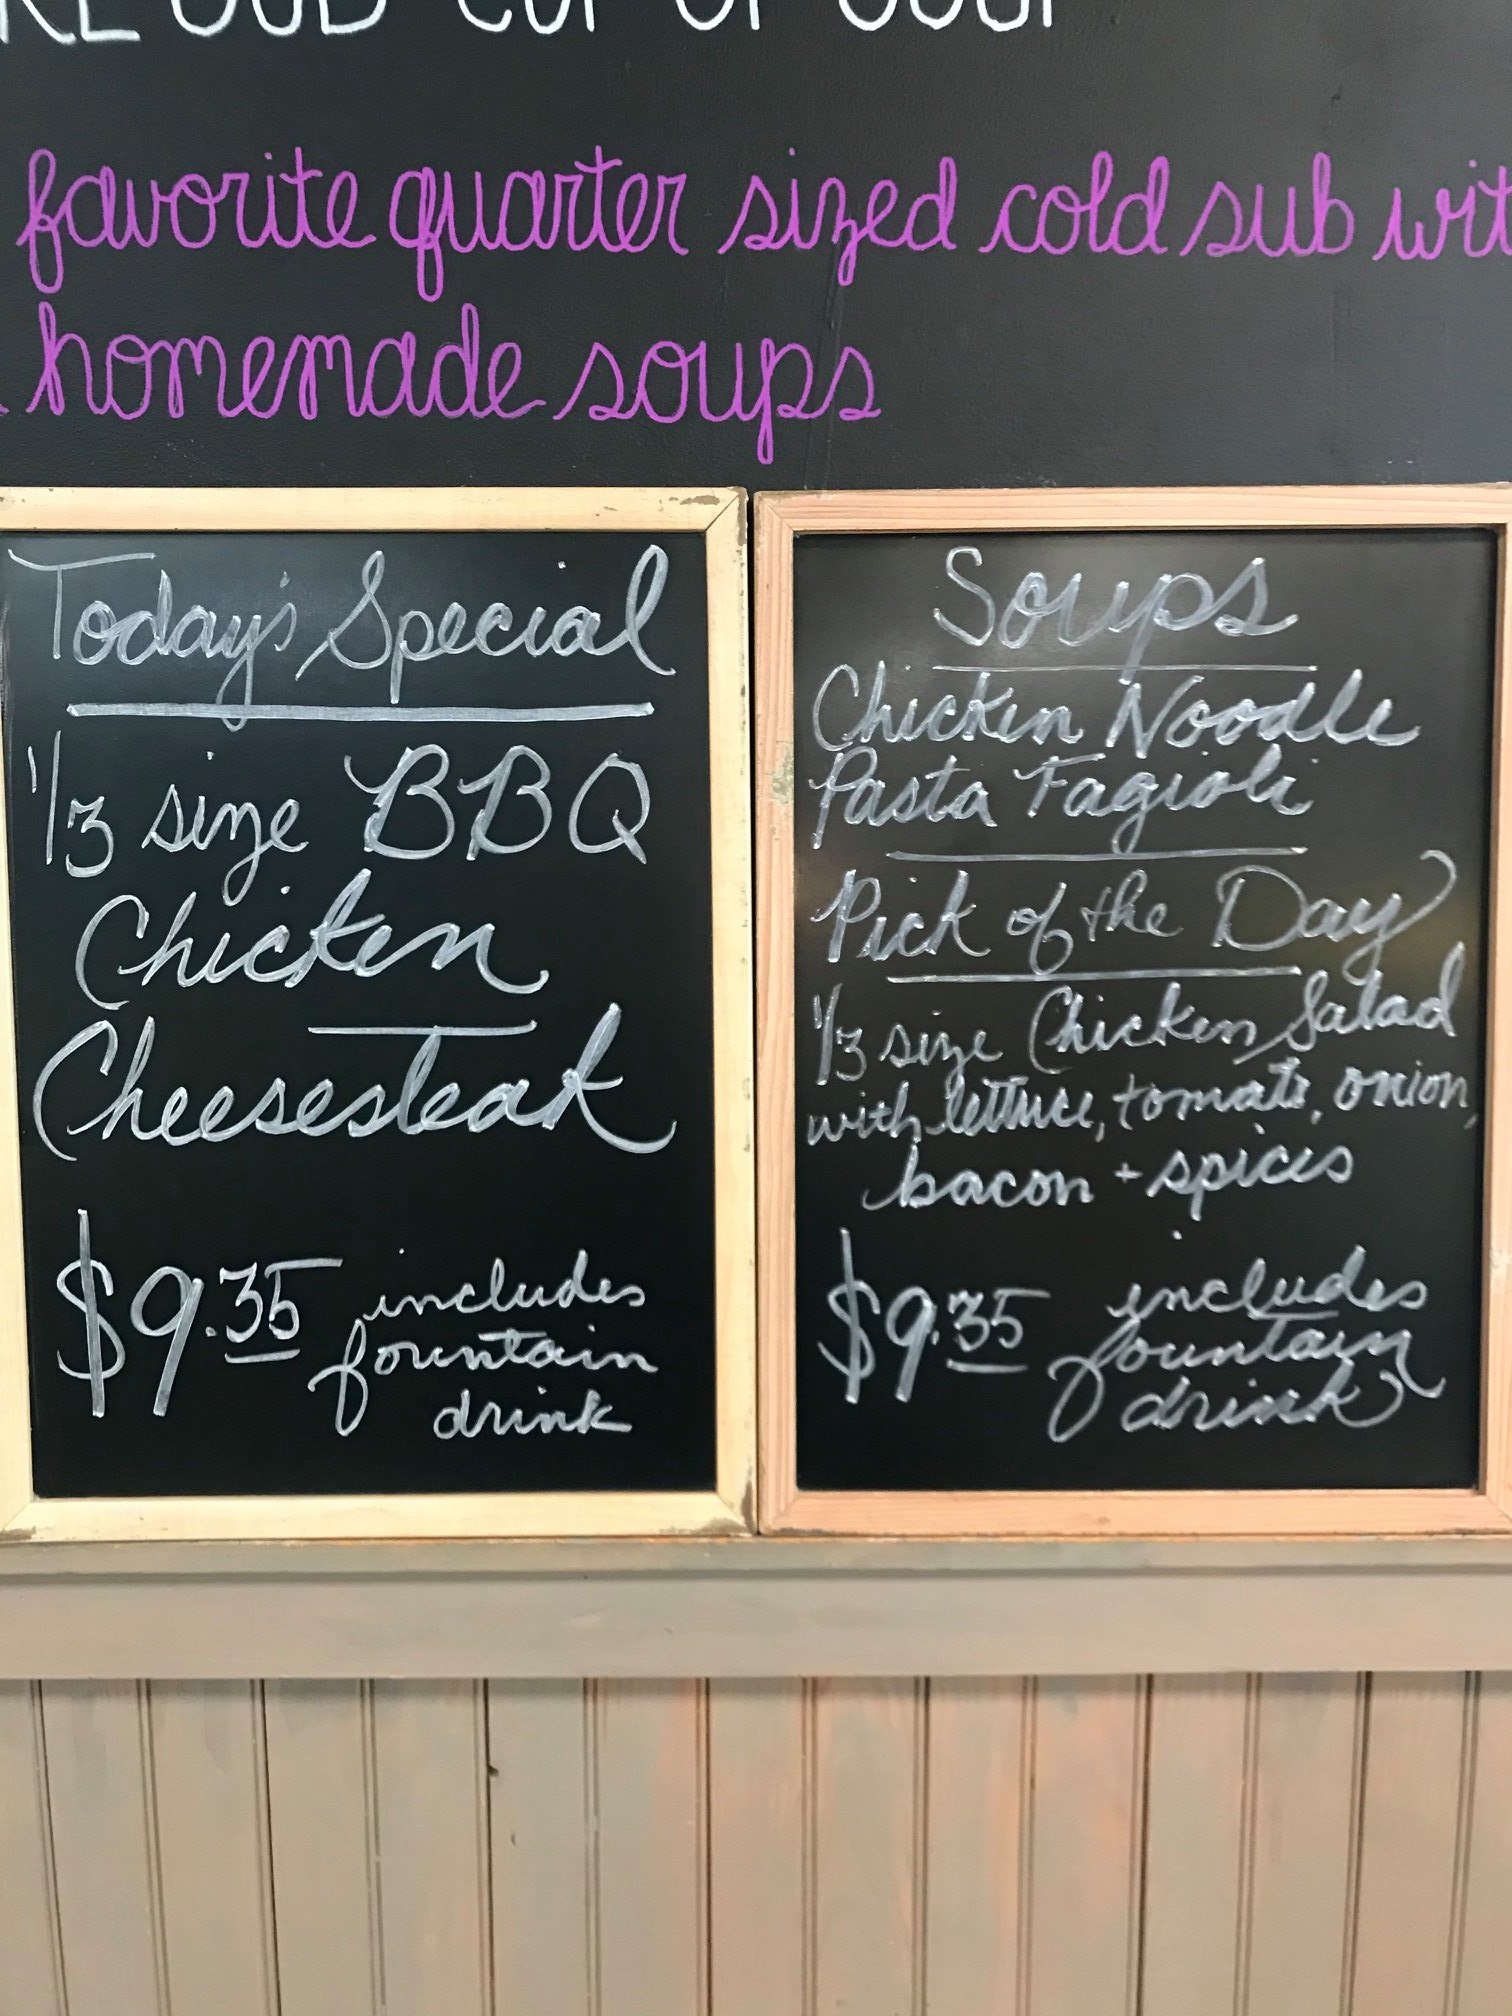 SUB CUP OF SOUP
favorite quarter sized cold sub wit
homemade soups
Today's Special
1/3 size BBQ
Chicken
Cheesesteak
$9.35 includes
fountain
drink
Soups
Chicken Noodle
Pasta Fagioli
Pick of the Day
1/3 size Chicken Salad
with lettuce, tomato, onion,
bacon + spices
$9.35 includes
fountain
drink